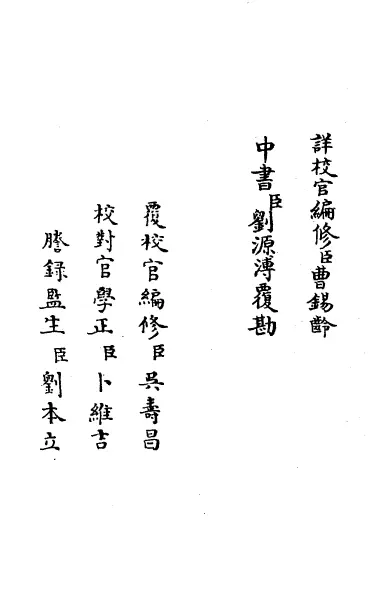 詳校官編修臣曹錫齡
中書臣劉源溥覆勘
覆校官編修臣吳壽昌
校對官學正臣卜維吉
謄錄監生臣劉本立